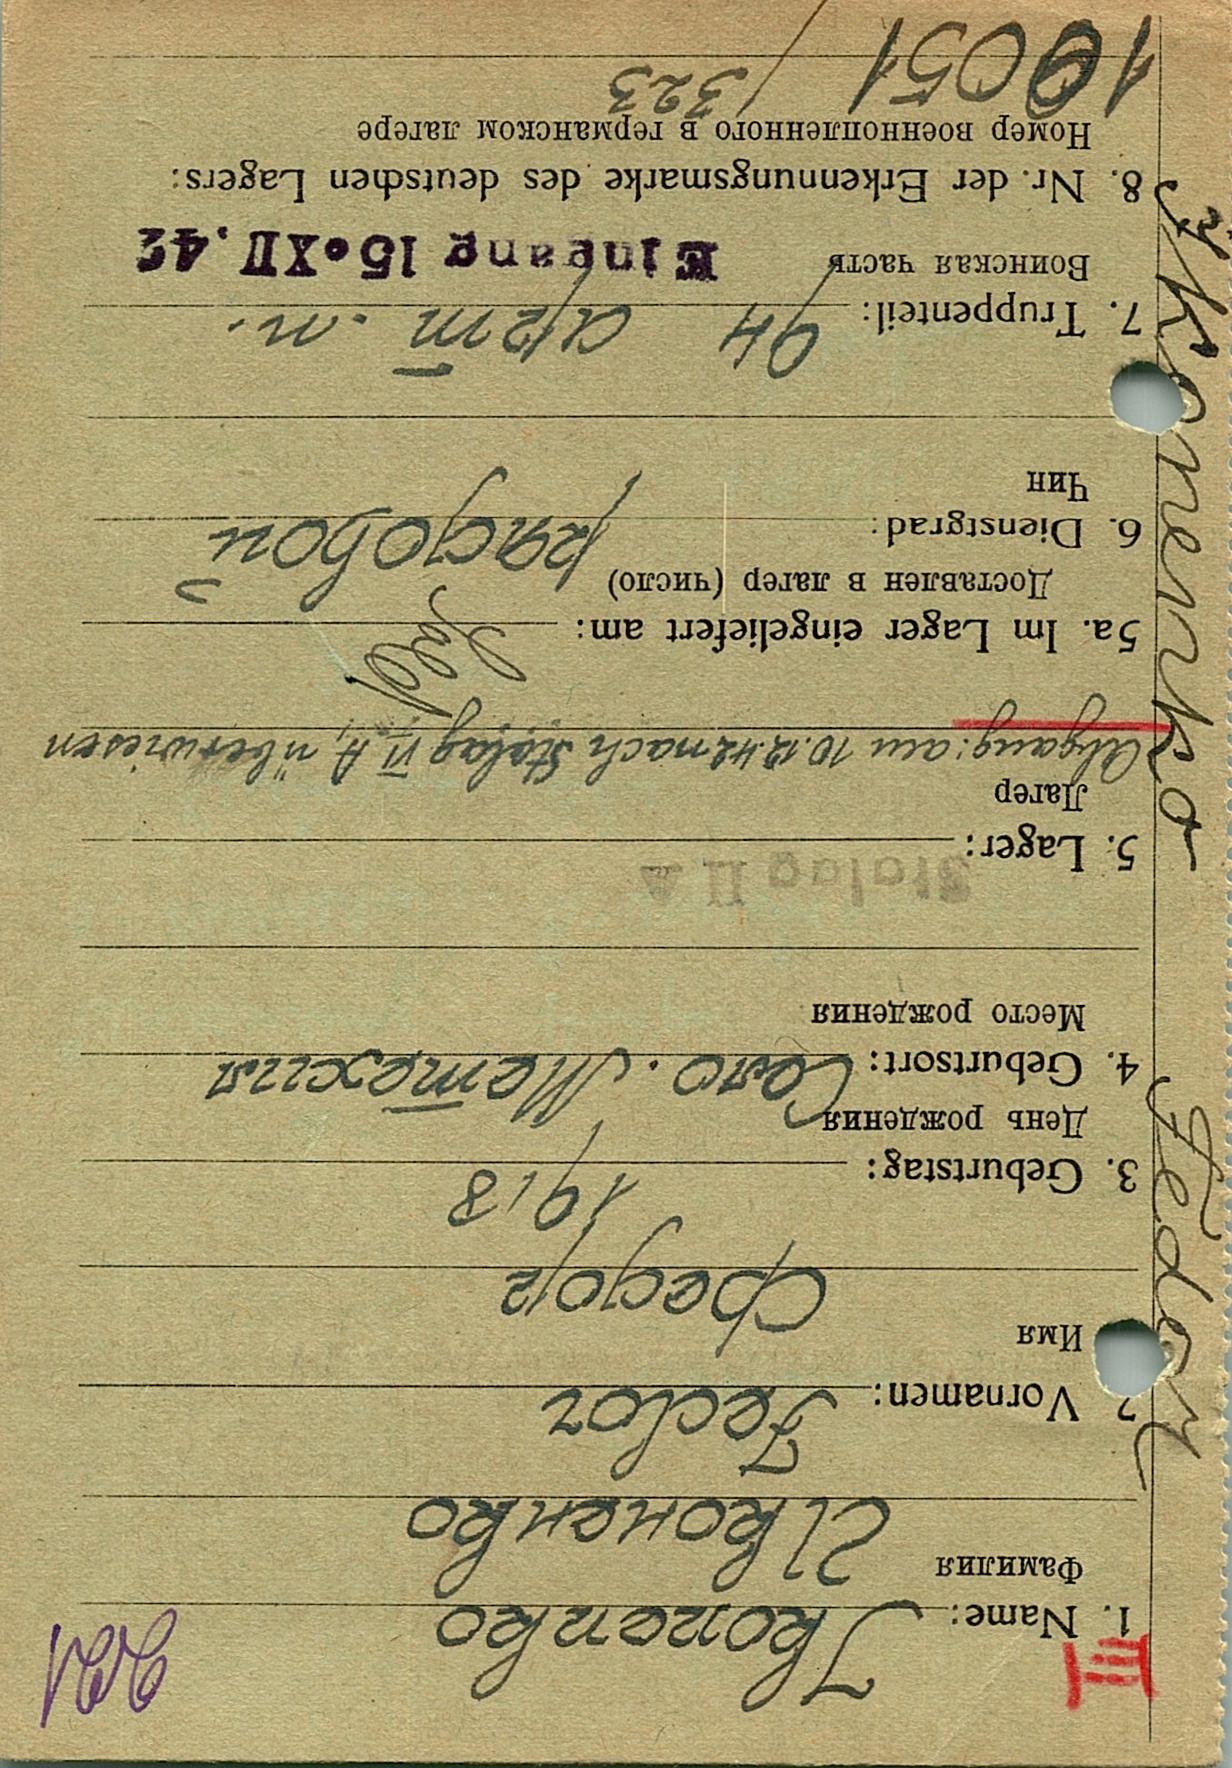 1. Name: Ikonenko
Фамилия Иконенко
2. Vornamen: Fedor
Имя Федор
3. Geburtstag: 1918
День рождения
4. Geburtsort: Село.
Место рождения
Stalag II A
5. Lager:
Лагер
Abgang: am 10.12.42 nach Stalag VI A, überwiesen
5a. Im Lager eingeliefert am:
Доставлен в лагер (число)
6. Dienstgrad: рядовой
Чин
7. Truppenteil: 94 арт. п.
Воинская часть
Eingang 15.XII.42
8. Nr. der Erkennungsmarke des deutschen Lagers:
Номер военнопленного в германском лагере
323
10051
Ikonenko Fedor